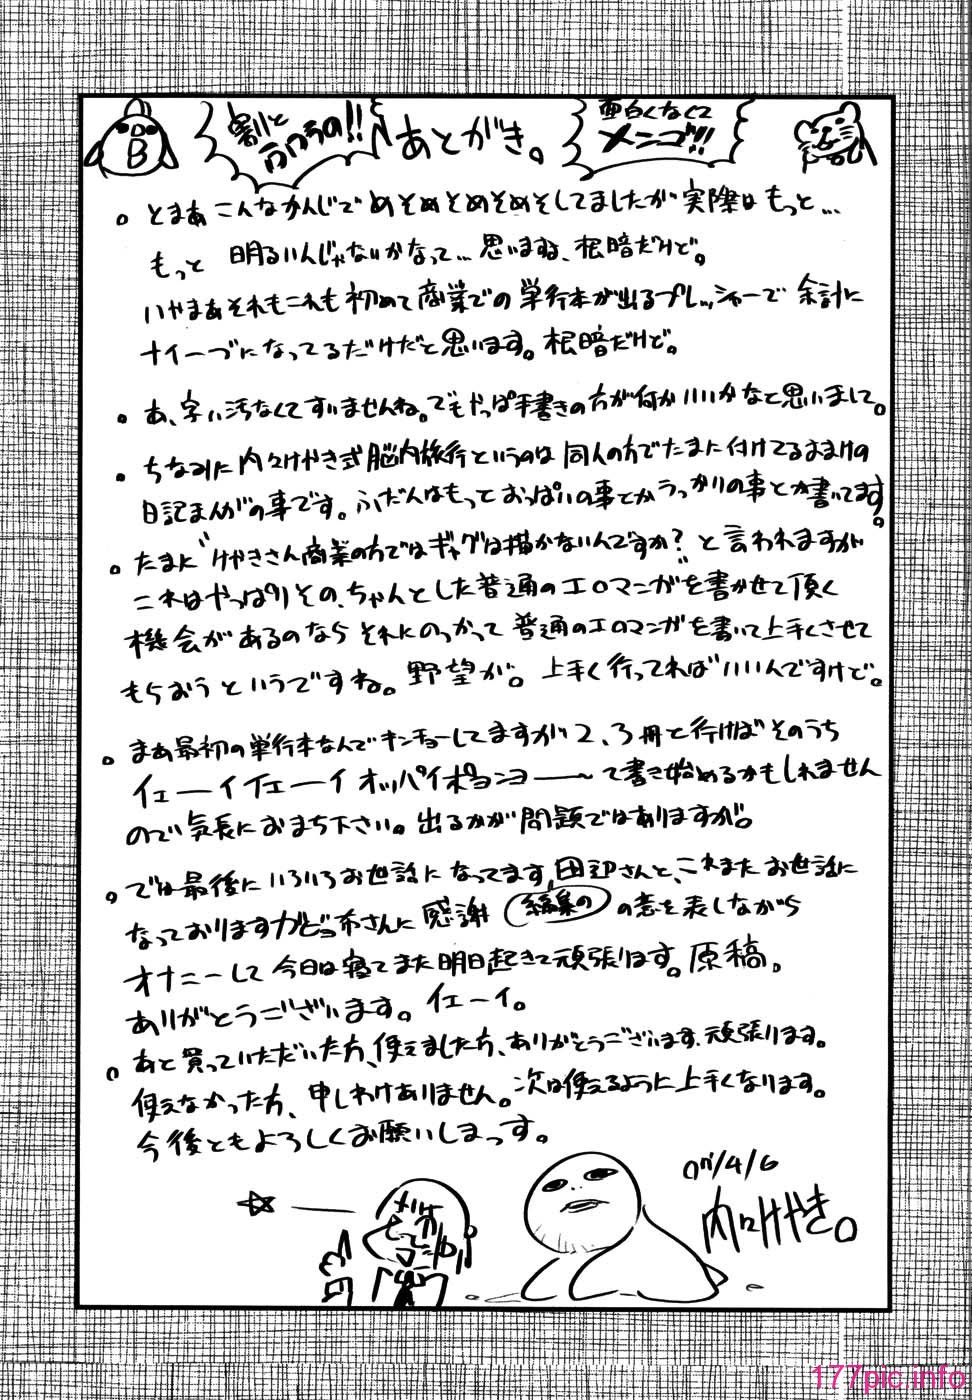 DB
割と
フツーの!!
あとがき。
面白くなくて
メンゴ!!!
。とまあこんなかんじでめそめそめそめそしてましたが実際はもっと…
もっと 明るいんじゃないかなって…思いますね、根暗だけど。
いやまあそれもこれも初めて商業での単行本が出るプレッシャーで 余計に
ナイーヴになってるだけだと思います。根暗だけど。
。あ、字い汚なくてすいませんね。でもやっぱ手書きの方が何かいいかなと思いまして。
。ちなみに内々けやき式脳内旅行というのは同人の方でたまに付けてるおまけの
日記まんがの事です。ふだんはもっとおっぱいの事とかうっかりの事とか書いてます。
。たまに〝けやきさん商業の方ではギャグは描かないんですか?〟と言われますが
これはやっぱりその、ちゃんとした普通のエロマンガを書かせて頂く
機会があるのならそれにのっかって普通のエロマンガを書いて上手くさせて
もらおうというですね。野望が。上手く行ってればいいんですけど。
。まあ最初の単行本なんでキンチョーしてますが2、3冊と行けばそのうち
イェーイイェーイオッパイポヨンヨー〜て書き始めるかもしれません
ので気長におまち下さい。出るかが問題ではありますが。
。では最後にいろいろお世話になってます田辺さんと、これまたお世話に
なっておりますさんに感謝 編集の の意を表しながら
オナニーして今日は寝てまた明日起きて頑張ります。原稿。
ありがとうございます。イェーイ。
。あと買っていただいた方、使えました方、ありがとうございます、頑張ります。
使えなかった方、申しわけありません。次は使えるように上手くなります。
今後ともよろしくお願いしまっす。
07/4/6
内々けやき。
177pic.info